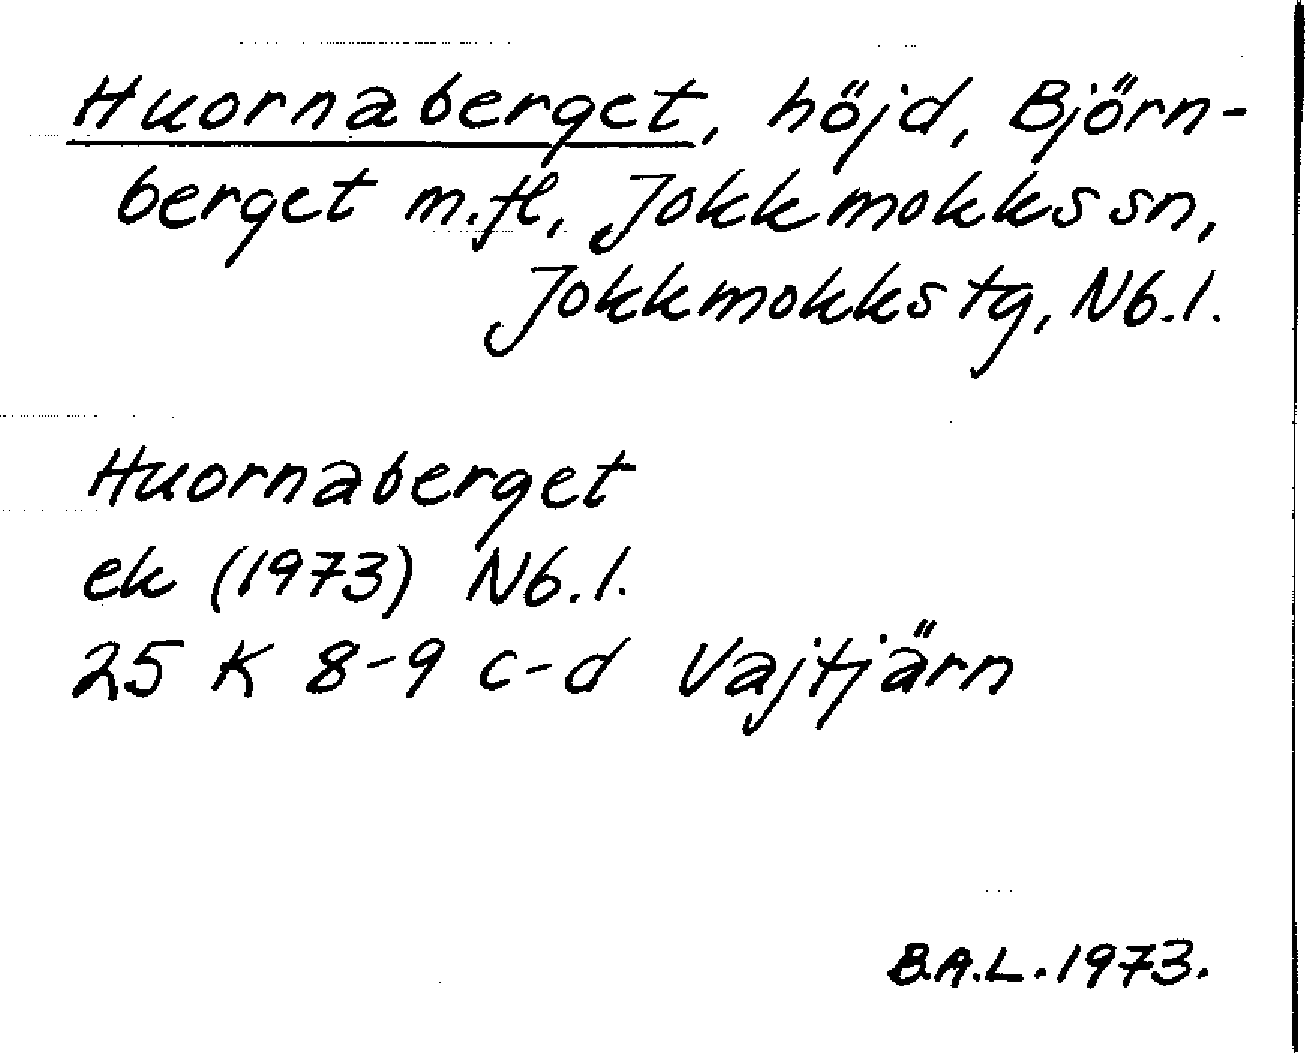 Huornaberget, höjd, Björn-
berget m.fl., Jokkmokks sn,
Jokkmokks tg, Nb.l.
Huornaberget
ek (1973) Nb.l.
25 K 8-9 c-d Vajtjärn
B.A.L. 1973.